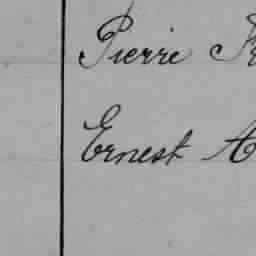 Pierre
Ernest A